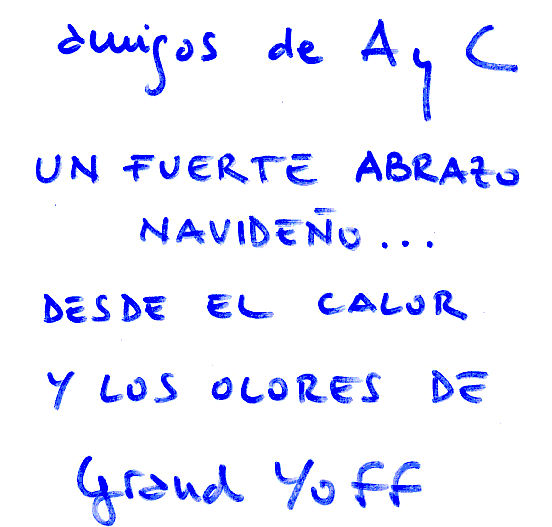 amigos de A y C
UN FUERTE ABRAZO
NAVIDEÑO...
DESDE EL CALOR
Y LOS OLORES DE
Grand Yoff